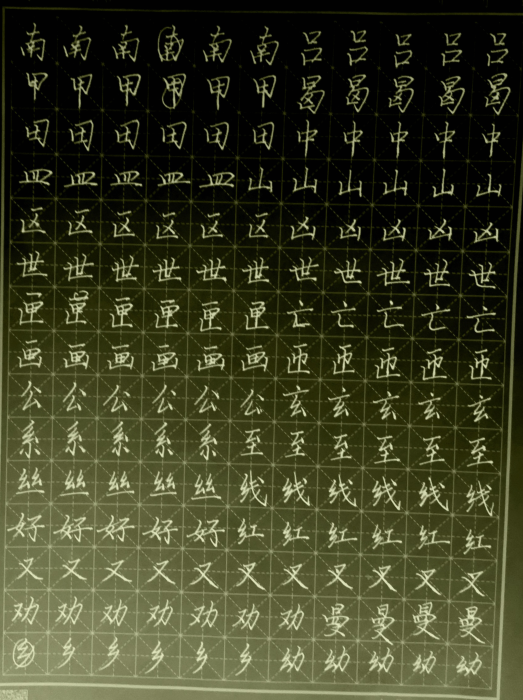 南南南南南南吕吕吕吕吕
甲甲甲甲甲甲曷曷曷曷曷
田田田田田田中中中中中
皿皿皿皿皿山山山山山山
区区区区区区凶凶凶凶凶
世世世世世世世世世世世
匣匣匣匣匣匣亡亡亡亡亡
画画画画画画匝匝匝匝匝
公公公公公公玄玄玄玄玄
系系系系系至至至至至至
丝丝丝丝丝线线线线线线
好好好好好红红红红红红
又又又又又又又又又又又
劝劝劝劝劝劝劝曼曼曼曼
乡乡乡乡乡乡幼幼幼幼幼